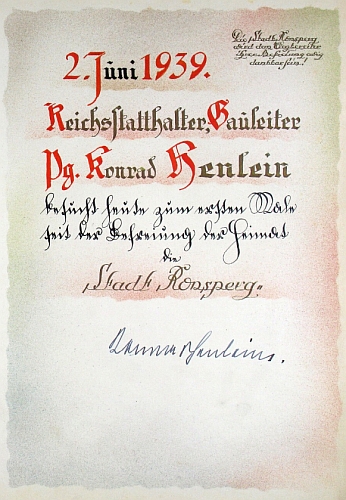 2. Juni 1939.
Die Stadt Ronsperg
wird dem Wegbereiter
ihrer Befreiung ewig
dankbar sein!
Reichsstatthalter, Gauleiter
Pg. Konrad Henlein
besucht heute zum ersten Male
seit der Befreiung der Heimat
die
„Stadt Ronsperg."
Konrad Henlein.